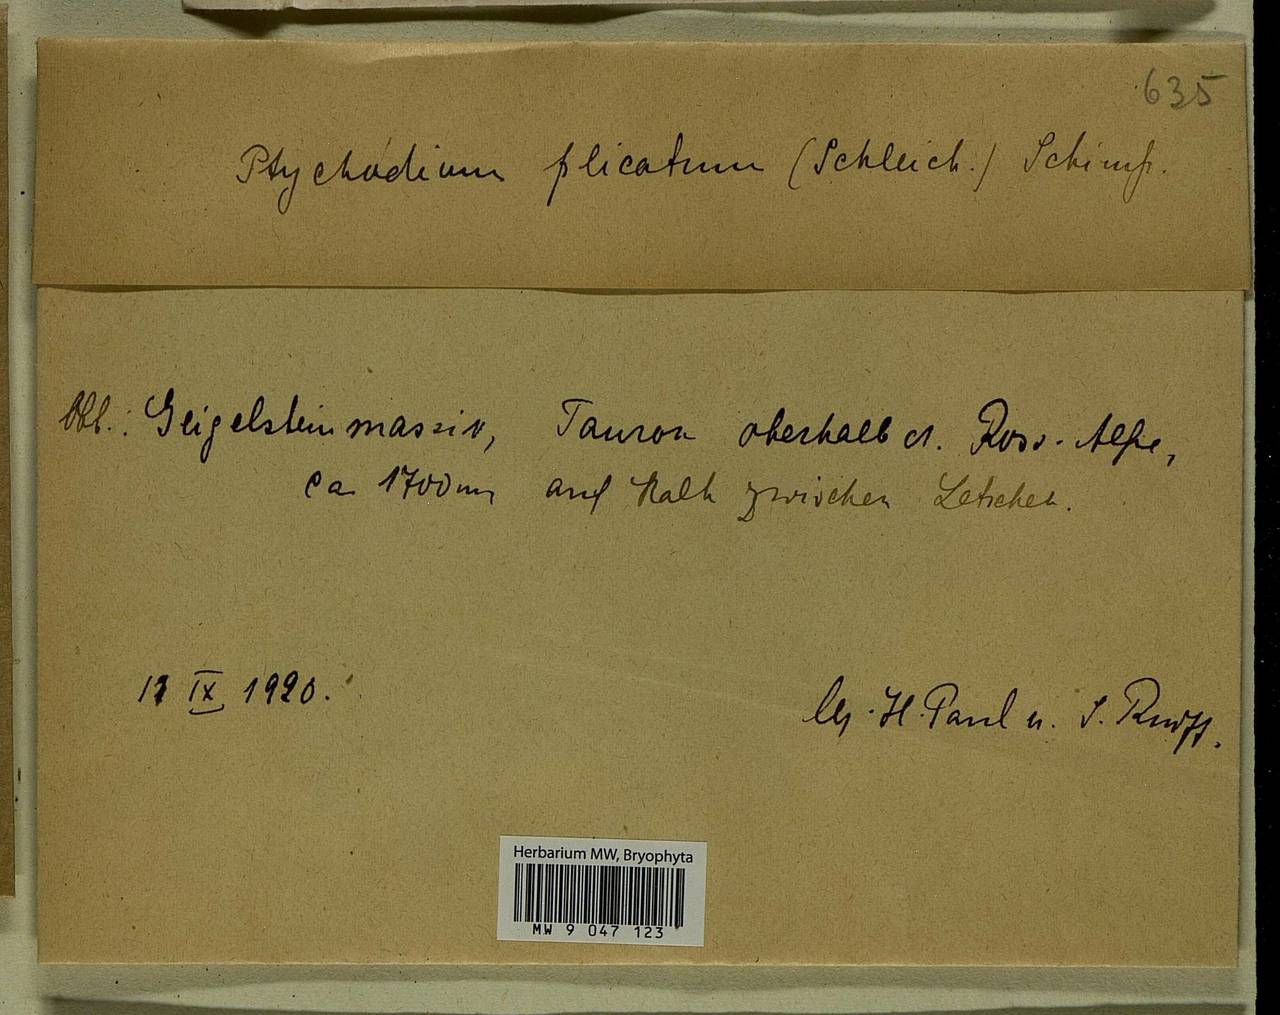 635
Ptychodium plicatum (Schleich.) Schimp.
Obb.: Geigelsteinmassiv, Tauron oberhalb d. Ross-Alpe,
ca 1700m, auf Kalk zwischen Latschen.
IX 1920.
leg. H. Paul u. S. Ruoff.
Herbarium MW, Bryophyta
MW 9 047 123